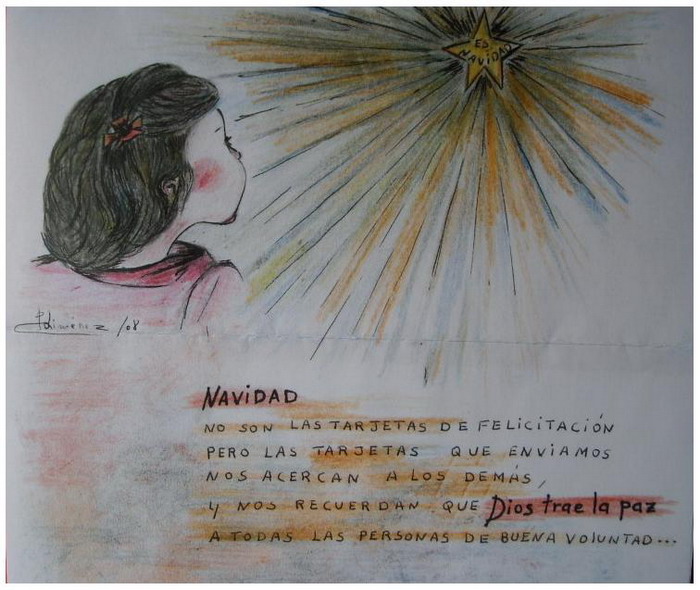 ES
NAVIDAD
Jiménez /08
NAVIDAD
NO SON LAS TARJETAS DE FELICITACIÓN
PERO LAS TARJETAS QUE ENVIAMOS
NOS ACERCAN A LOS DEMÁS,
Y NOS RECUERDAN QUE Dios trae la paz
A TODAS LAS PERSONAS DE BUENA VOLUNTAD...